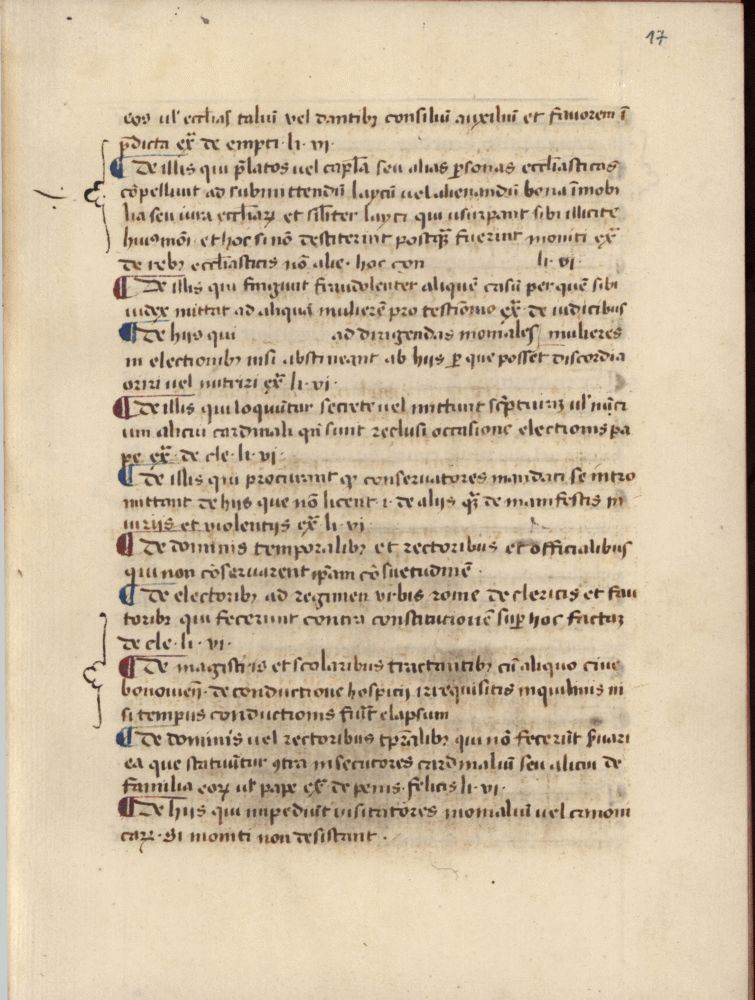 17
eos ul' eccl'ias taliū vel dantibꝫ consiliū auxiliū et fauorem ī
p̄dicta ex̄ de empti · li · vi ·
¶ De illis qui p̄latos uel cap̄la seu alias ꝑsonas eccl'iasticas
cōpellunt ad submittendū laycis uel alienandū bona īmobi
lia seu iura eccl'iaꝝ et sil'iter layci qui usurpant sibi illicite
huiusmōi · et hoc si nō destiterint postqꝫ fuerint moniti ex̄
de rebꝫ eccl'iasticis nō alie · hoc con li · vi ·
¶ De illis qui fingunt fraudolenter aliquē casū per quē sibi
iudex mittat ad aliquā mulierē pro testīonio ex̄ · de iudicibus
¶ De hiis qui ad dirigendas moniales / mulieres
in electionibꝫ nisi abstineant ab hiis ꝑ que posset discordia
oriri uel nutriri ex̄ li · vi ·
¶ De illis qui loquūtur secrete uel mittunt sc̄pturaꝫ ul' nūci
um alicui cardinali qn̄ sunt reclusi occasione electionis pa
pe ex̄ · de ele · li · vi ·
¶ De illis qui procurant ꝙ conseruatores mandati se intro
mittant de hiis que nō licent · i · de aliis qꝫ de manifestis in
iuriis et violentiis ex̄ li · vi ·
¶ De dominis temporalibꝫ et rectoribus et officialibus
qui non cōseruarent ip̄am cōsuetudinē ·
¶ De electoribꝫ ad regimen urbis rome de clericis et fau
toribꝫ qui fecerint contra constitutionē suꝑ hoc factaꝫ
de ele · li · vi ·
¶ De magistris et scolaribus tractantibꝫ cū aliquo ciue
bononien̄ · de conductione hospicii irrequisitis inquilinis ni
si tempus conductionis fu'it elapsum
¶ De dominis uel rectoribus tp̄ralibꝫ qui nō fecerīt ſuari
ea que statuūtur ꝯtra insecutores cardinaliū seu alicui de
familia eoꝝ ul' pape ex̄ de penis · felicis li · vi ·
¶ De hiis qui impediūt uisitatores monialiū uel canoni
caꝝ · Si moniti non desistant ·